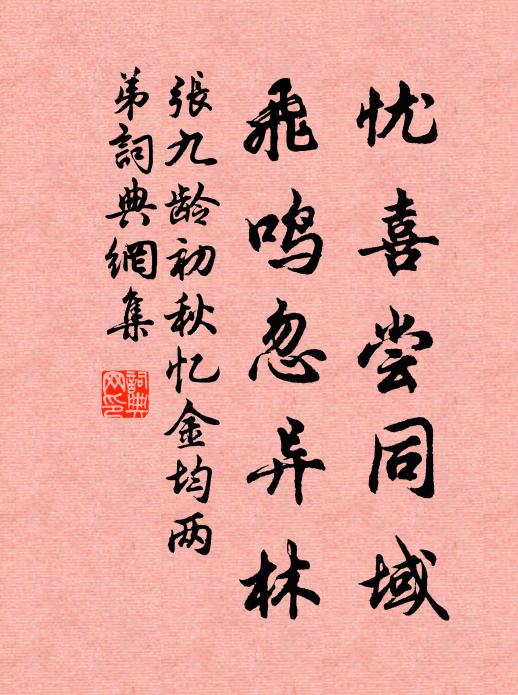 忧喜尝同域
飛鸣忽异林
張九龄初秋忆金均两
弟詞典網集
詞典网印